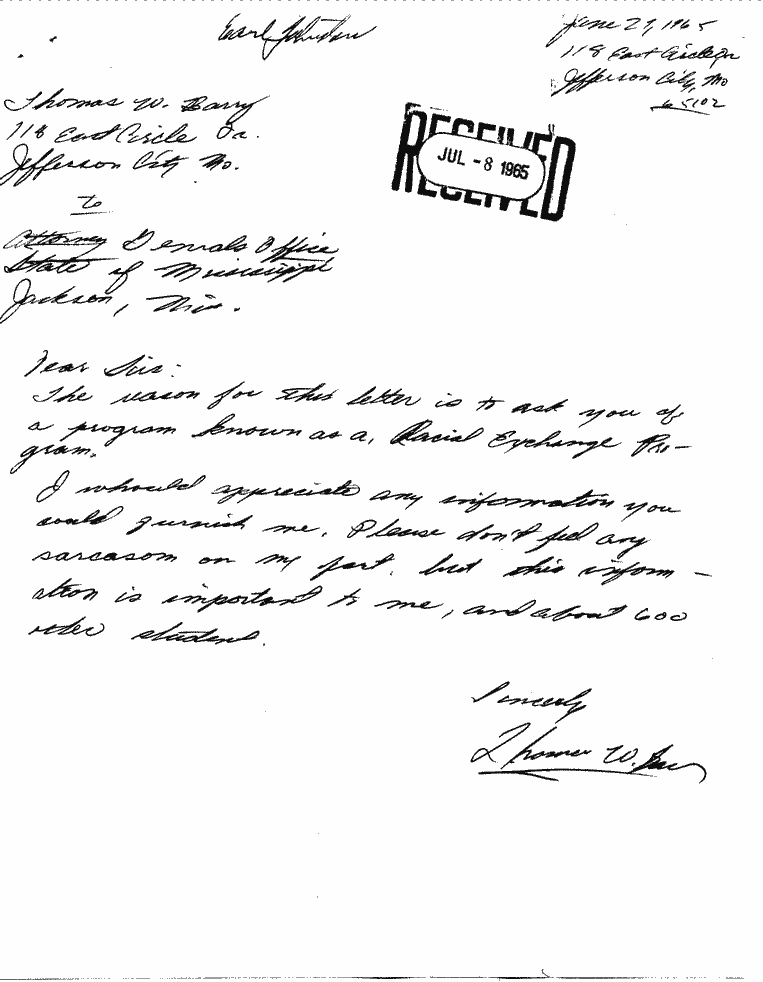 Earl Johnston
June 27, 1965
118 East Circle Dr
Jefferson City, Mo
65102
Thomas W. Barry
118 East Circle Dr.
Jefferson City Mo.
RECEIVED
JUL -8 1965
RECEIVED
to
Attorney Generals Office
State of Mississippi
Jackson, Miss.
Dear Sirs:
The reason for this letter is to ask you of
a program known as a, Racial Exchange Pro-
gram.
I whould appreciate any information you
could furnish me. Please don't feel any
sarcasom on my part, but this inform-
ation is important to me, and about 600
other student.
Sincerly
Thomas W. Barry